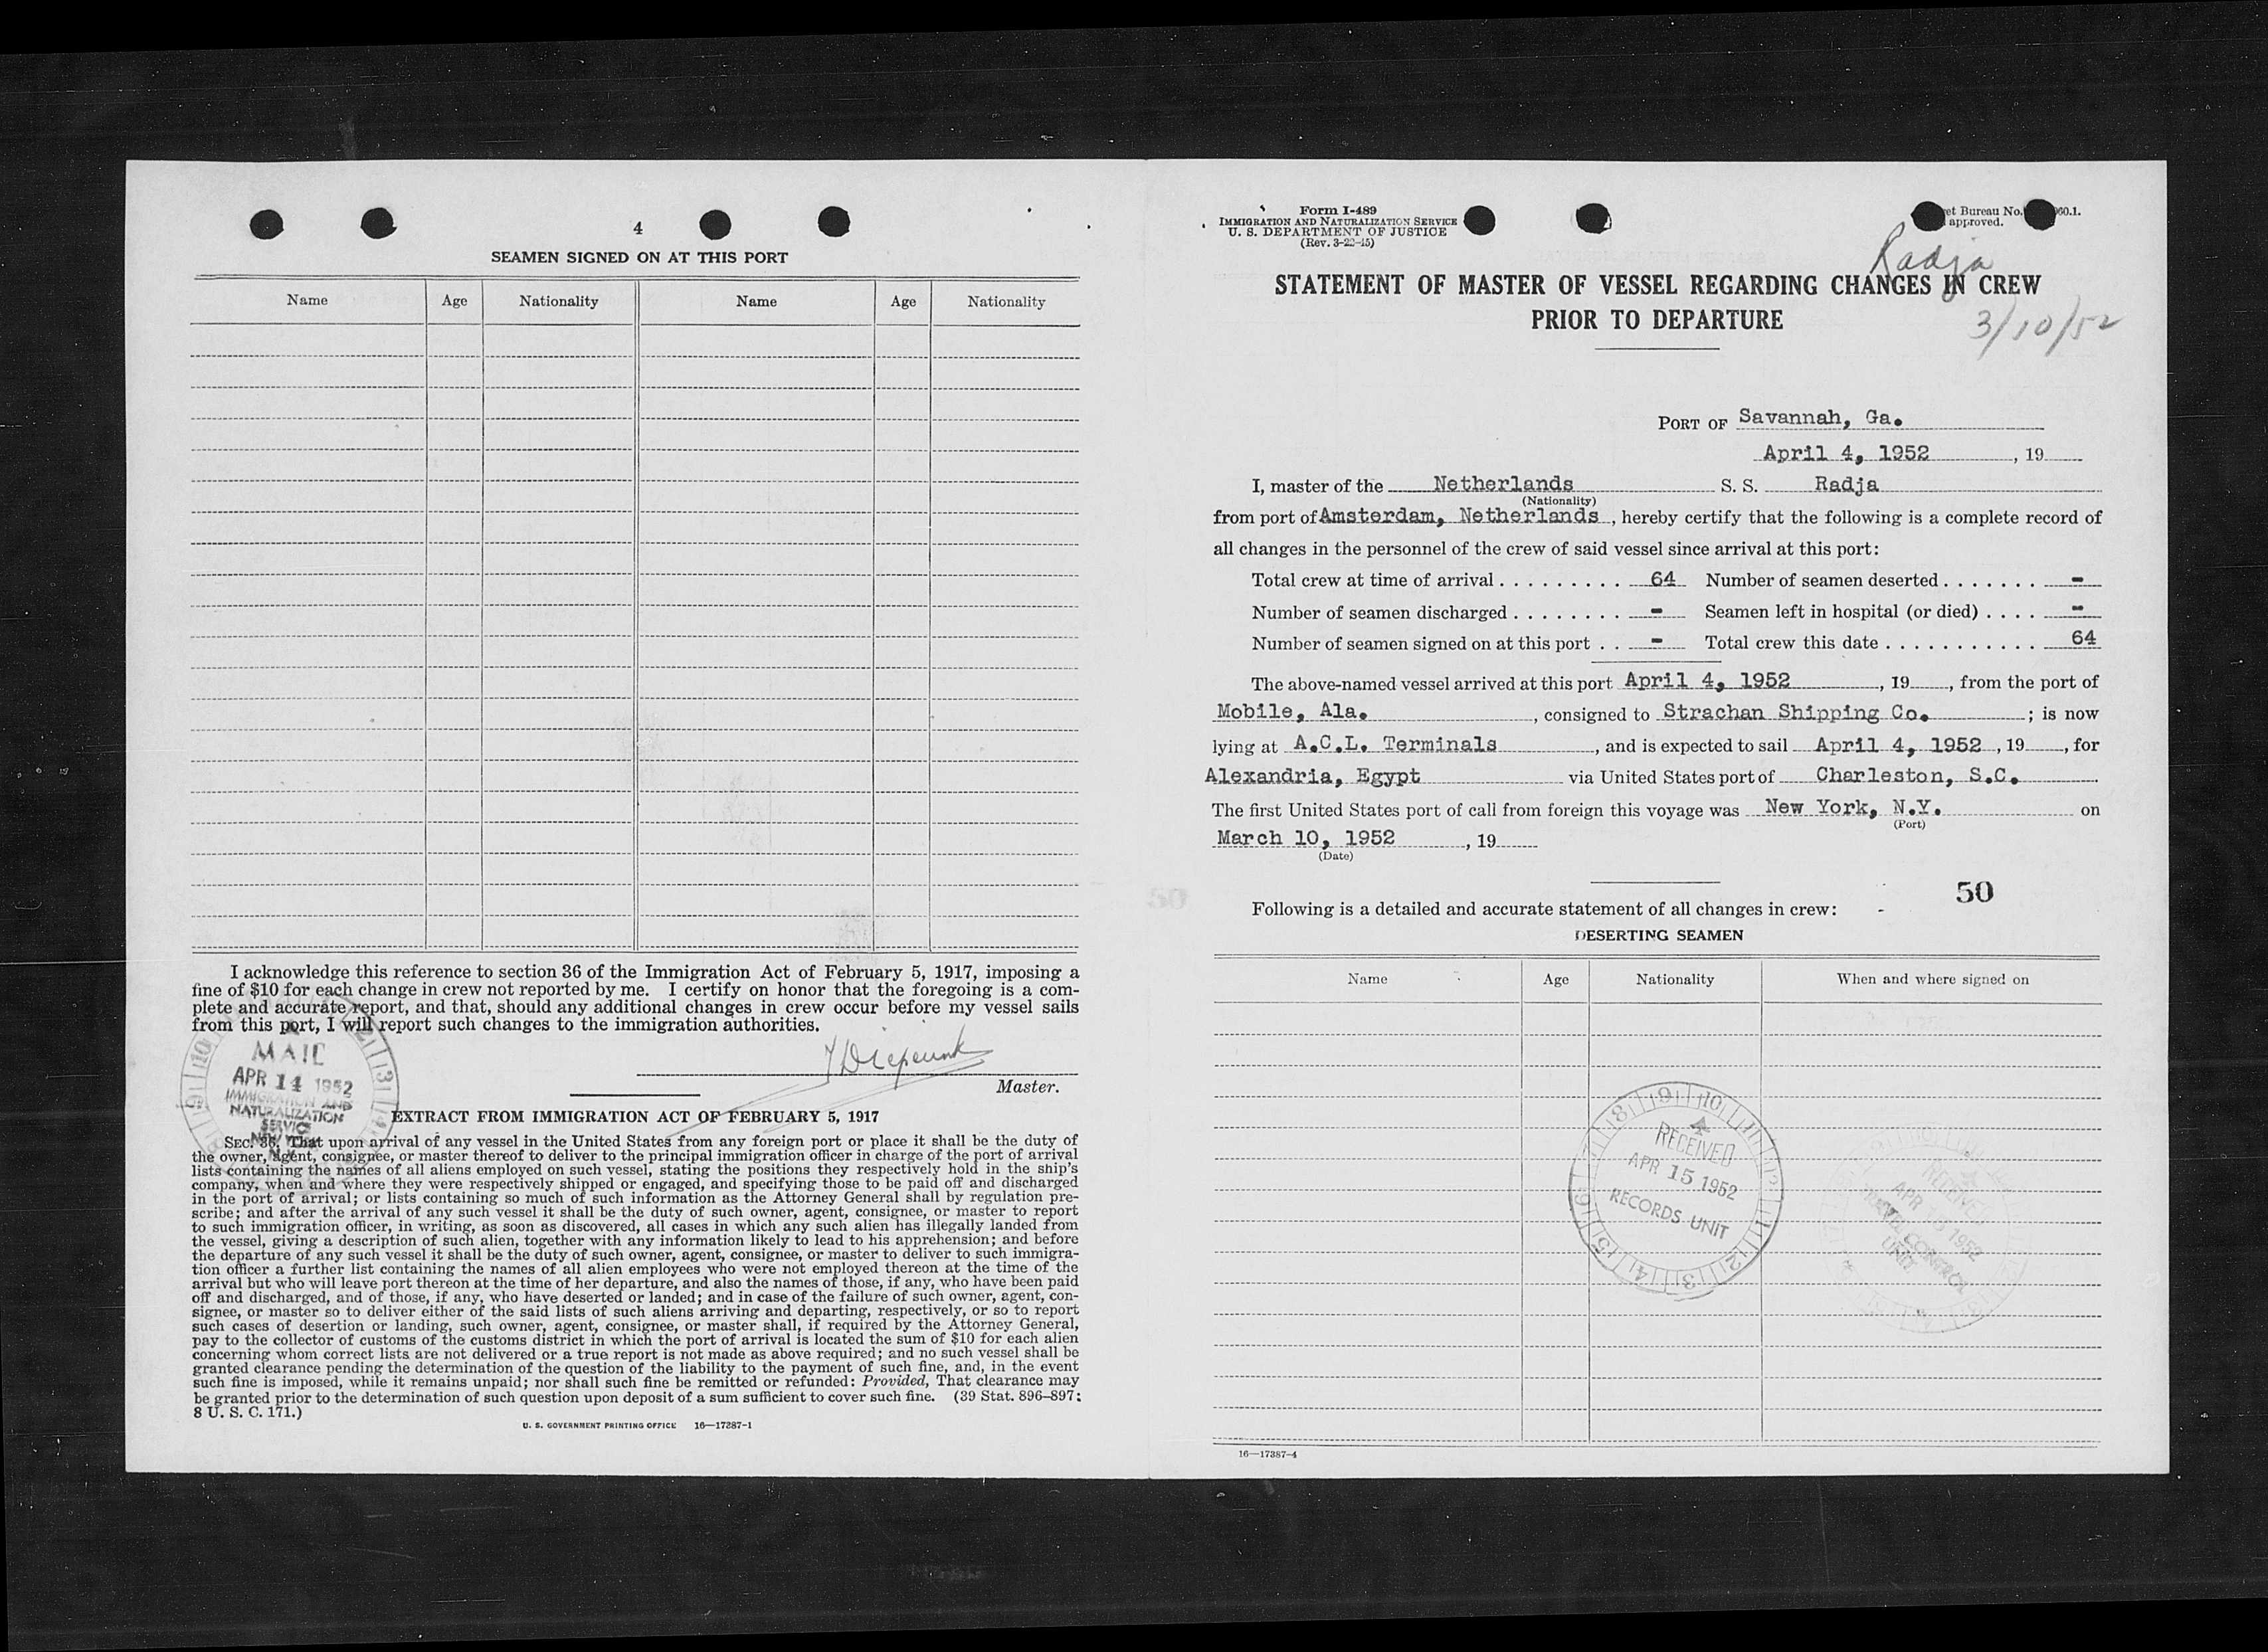 4
SEAMEN SIGNED ON AT THIS PORT
Name Age Nationality Name Age Nationality
I acknowledge this reference to section 36 of the Immigration Act of February 5, 1917, imposing a
fine of $10 for each change in crew not reported by me. I certify on honor that the foregoing is a com-
plete and accurate report, and that, should any additional changes in crew occur before my vessel sails
from this port, I will report such changes to the immigration authorities.
Master.
MAIL
APR 14 1952
IMMIGRATION AND
NATURALIZATION
SERVICE
EXTRACT FROM IMMIGRATION ACT OF FEBRUARY 5, 1917
SEC. 36. That upon arrival of any vessel in the United States from any foreign port or place it shall be the duty of
the owner, agent, consignee, or master thereof to deliver to the principal immigration officer in charge of the port of arrival
lists containing the names of all aliens employed on such vessel, stating the positions they respectively hold in the ship's
company, when and where they were respectively shipped or engaged, and specifying those to be paid off and discharged
in the port of arrival; or lists containing so much of such information as the Attorney General shall by regulation pre-
scribe; and after the arrival of any such vessel it shall be the duty of such owner, agent, consignee, or master to report
to such immigration officer, in writing, as soon as discovered, all cases in which any such alien has illegally landed from
the vessel, giving a description of such alien, together with any information likely to lead to his apprehension; and before
the departure of any such vessel it shall be the duty of such owner, agent, consignee, or master to deliver to such immigra-
tion officer a further list containing the names of all alien employees who were not employed thereon at the time of the
arrival but who will leave port thereon at the time of her departure, and also the names of those, if any, who have been paid
off and discharged, and of those, if any, who have deserted or landed; and in case of the failure of such owner, agent, con-
signee, or master so to deliver either of the said lists of such aliens arriving and departing, respectively, or so to report
such cases of desertion or landing, such owner, agent, consignee, or master shall, if required by the Attorney General,
pay to the collector of customs of the customs district in which the port of arrival is located the sum of $10 for each alien
concerning whom correct lists are not delivered or a true report is not made as above required; and no such vessel shall be
granted clearance pending the determination of the question of the liability to the payment of such fine, and, in the event
such fine is imposed, while it remains unpaid; nor shall such fine be remitted or refunded: Provided, That clearance may
be granted prior to the determination of such question upon deposit of a sum sufficient to cover such fine. (39 Stat. 896–897;
8 U. S. C. 171.)
U. S. GOVERNMENT PRINTING OFFICE 16—17387-1
Form I-489
IMMIGRATION AND NATURALIZATION SERVICE
U. S. DEPARTMENT OF JUSTICE
(Rev. 3-22-45)
Bureau No.
approved.
Radja
STATEMENT OF MASTER OF VESSEL REGARDING CHANGES IN CREW
PRIOR TO DEPARTURE
3/10/52
PORT OF Savannah, Ga.
April 4, 1952, 19
I, master of the Netherlands S. S. Radja
(Nationality)
from port of Amsterdam, Netherlands, hereby certify that the following is a complete record of
all changes in the personnel of the crew of said vessel since arrival at this port:
Total crew at time of arrival . . . . . . . . . 64 Number of seamen deserted . . . . . . . -
Number of seamen discharged . . . . . . . . - Seamen left in hospital (or died) . . . . -
Number of seamen signed on at this port . . - Total crew this date . . . . . . . . . . . 64
The above-named vessel arrived at this port April 4, 1952, 19, from the port of
Mobile, Ala., consigned to Strachan Shipping Co.; is now
lying at A.C.L. Terminals, and is expected to sail April 4, 1952, 19, for
Alexandria, Egypt via United States port of Charleston, S.C.
The first United States port of call from foreign this voyage was New York, N.Y. on
(Port)
March 10, 1952, 19
(Date)
50
Following is a detailed and accurate statement of all changes in crew: -
DESERTING SEAMEN
Name Age Nationality When and where signed on
RECEIVED
APR 15 1952
RECORDS UNIT
RECEIVED
APR 1952
TRAVEL CONTROL
UNIT
16—17387-4